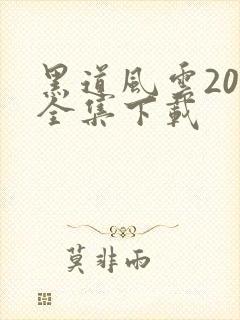 黑道風雲20
全集下載
莫非雨